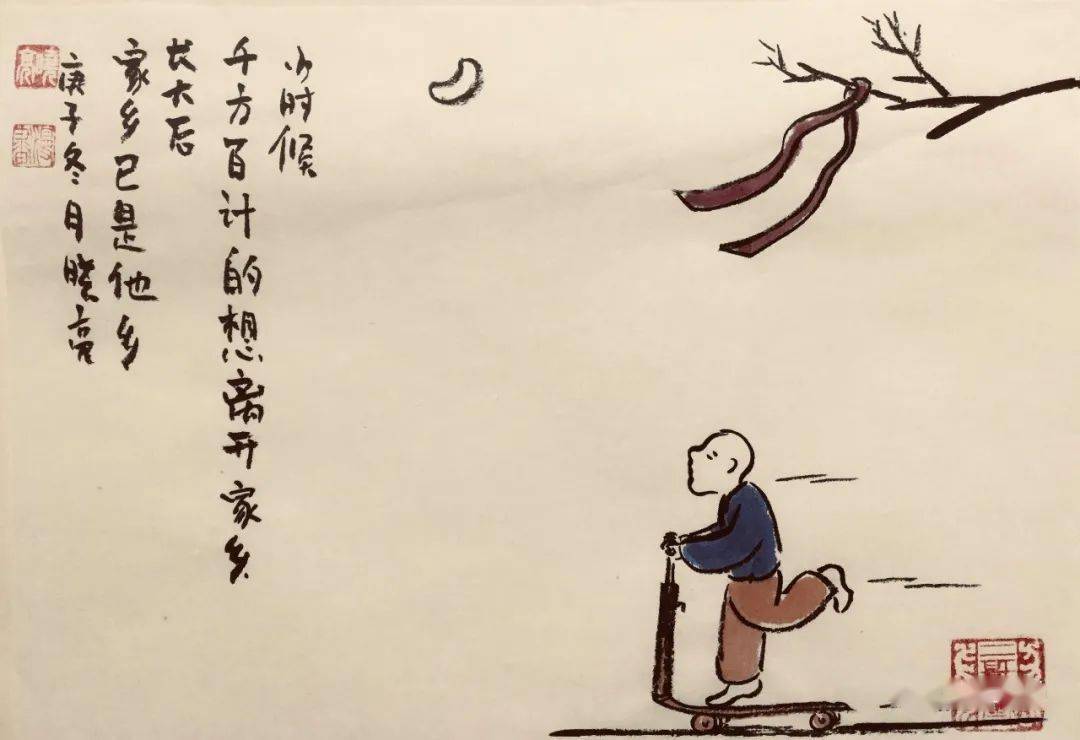 小时候
千方百计的想离开家乡
长大后
家乡已是他乡
庚子冬月晓亮